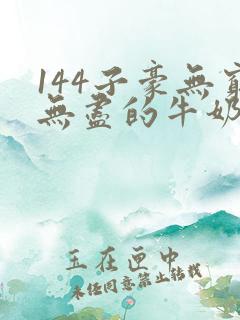 144子豪無窮
無盡的牛奶
玉在匣中
未經同意禁止轉載